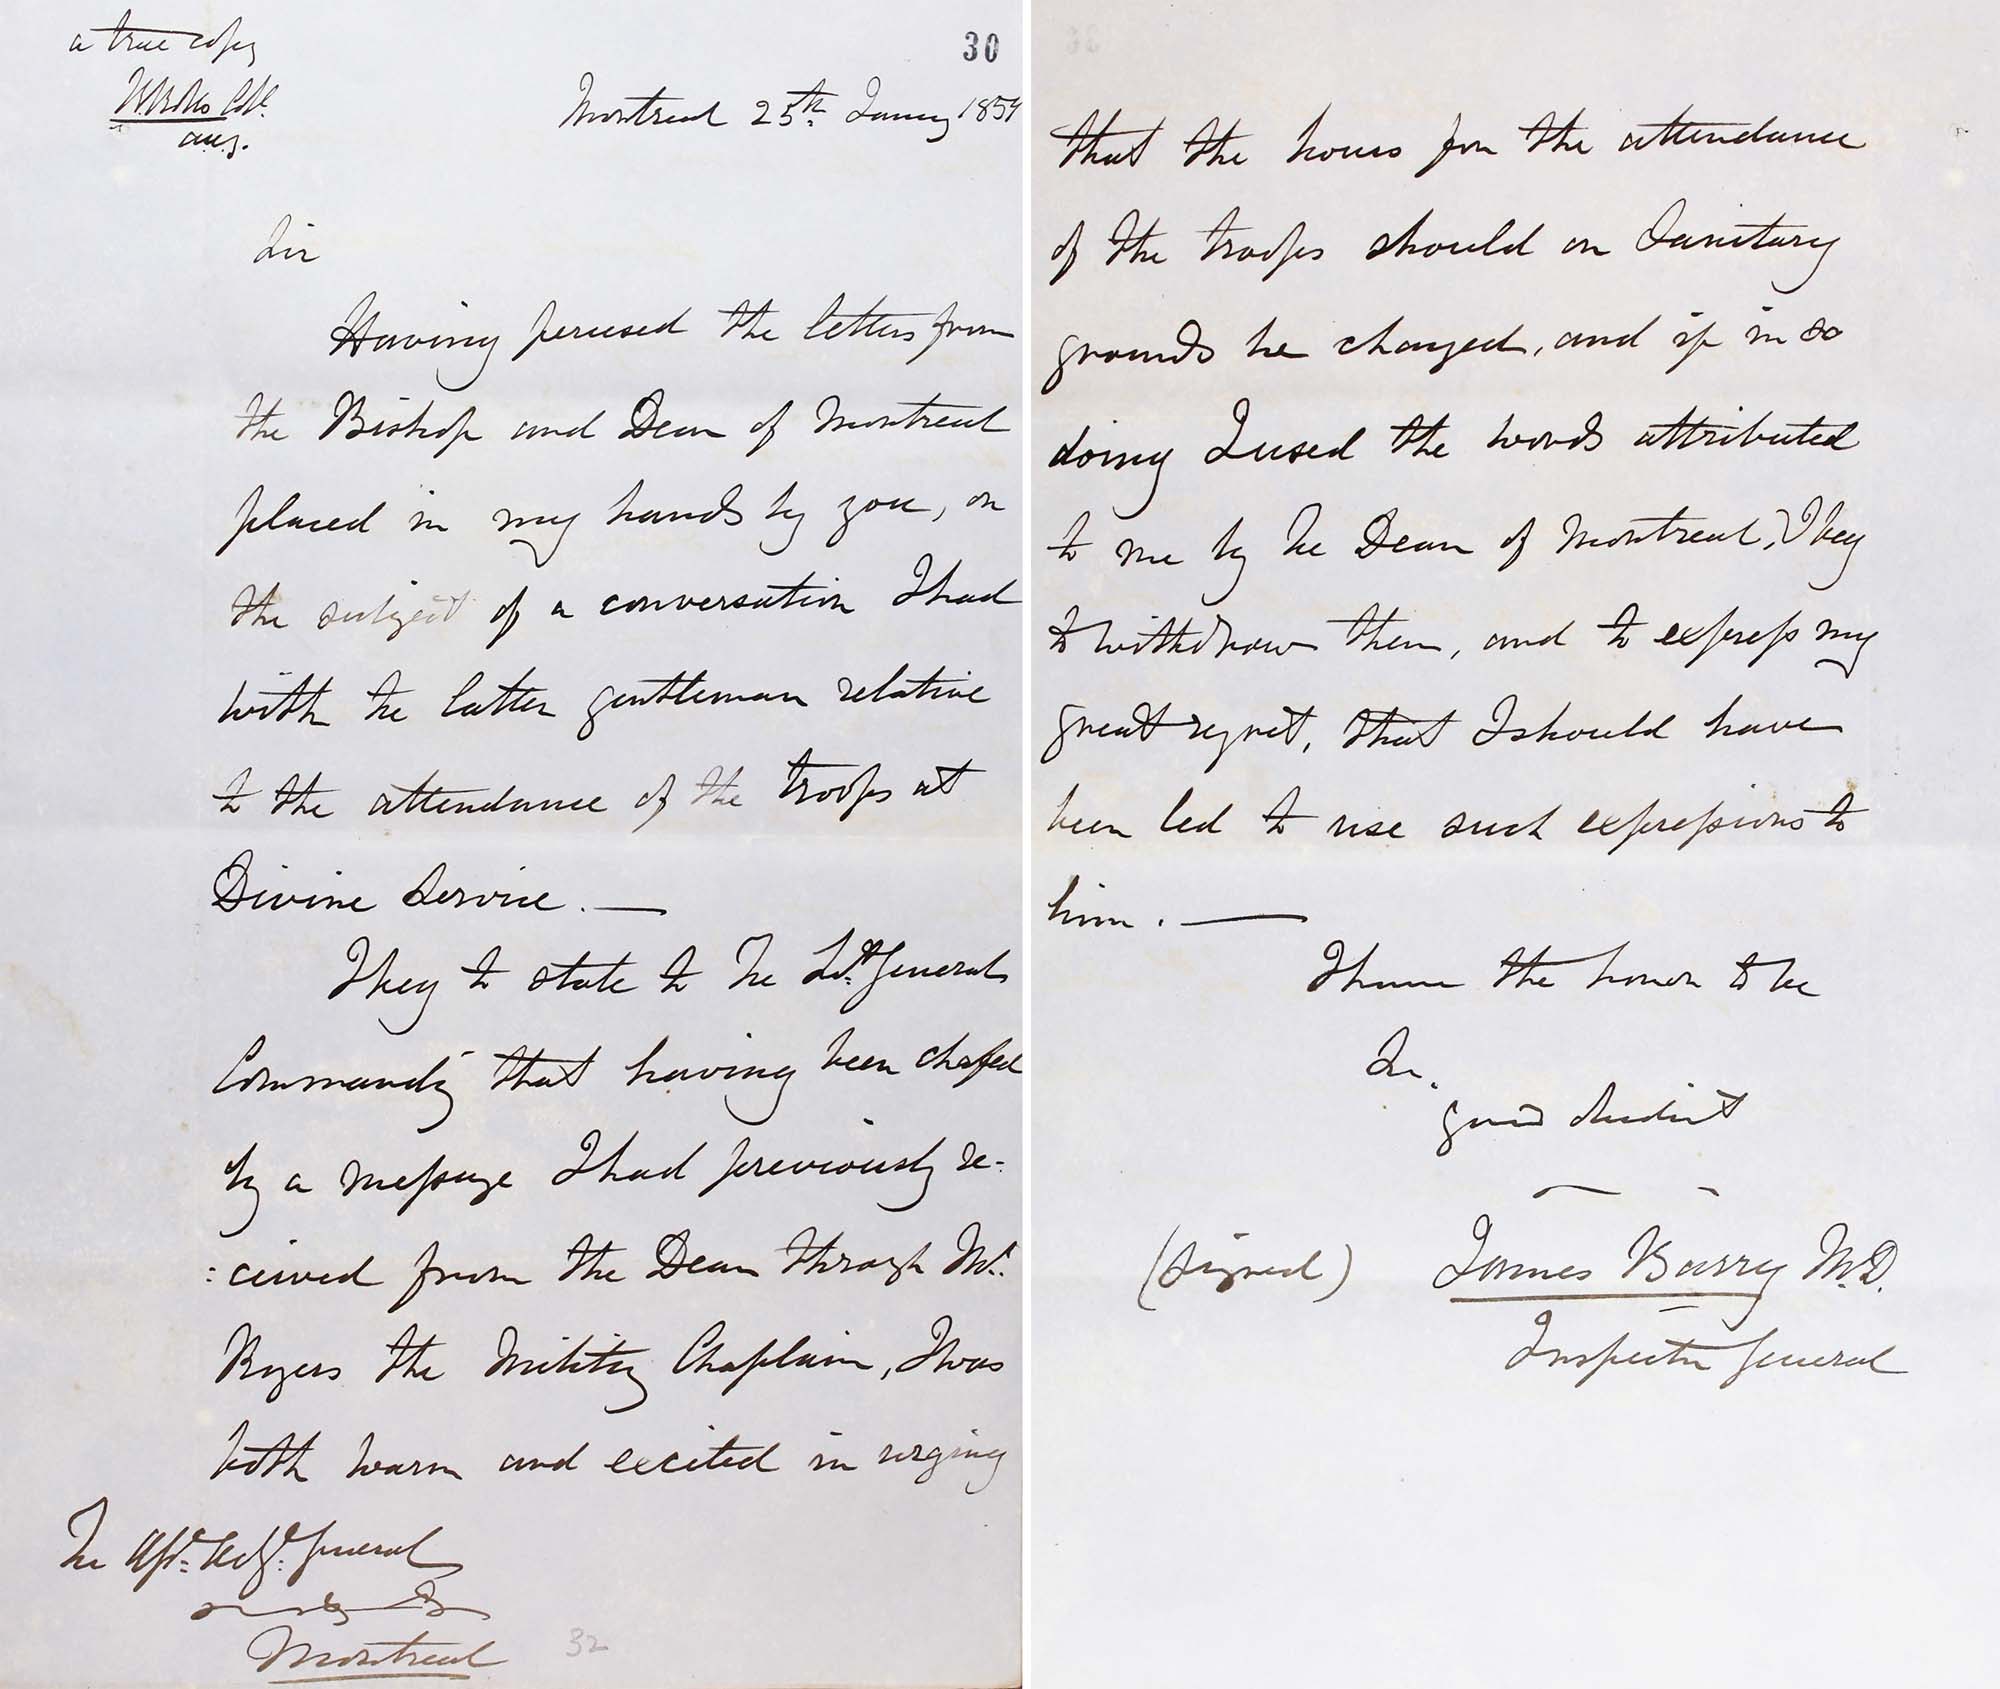 a true copy
Col.
A.A.G.
30
Montreal 25th January 1859
Sir
Having perused the letters from
the Bishop and Dean of Montreal
placed in my hands by you, on
the subject of a conversation I had
with the latter gentleman relative
to the attendance of the troops at
Divine Service. —
I beg to state to the Lt. General
Commandg that having been chafed
by a message I had previously re-
:ceived from the Dean through Mr.
Rogers the Military Chaplain, I was
both warm and excited in urging
The Asst. Adjt. General
Montreal
32
that the hours for the attendance
of the troops should on Sanitary
grounds be changed, and if in so
doing I used the words attributed
to me by the Dean of Montreal, I beg
to withdraw them, and to express my
great regret, that I should have
been led to use such expressions to
him. —
I have the honor to be
Sir.
your obedient
(signed) James Barry M.D.
Inspector General